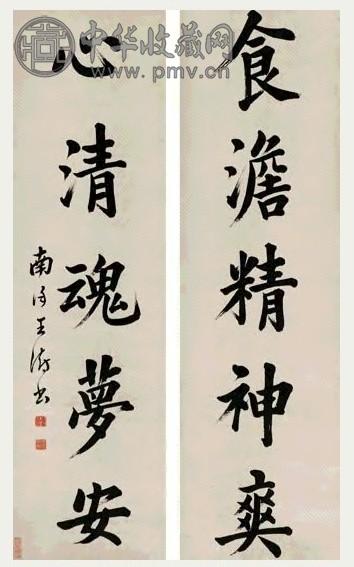 中华收藏网
www.pmv.cn
食澹精神爽
心清魂夢安
南
王
書